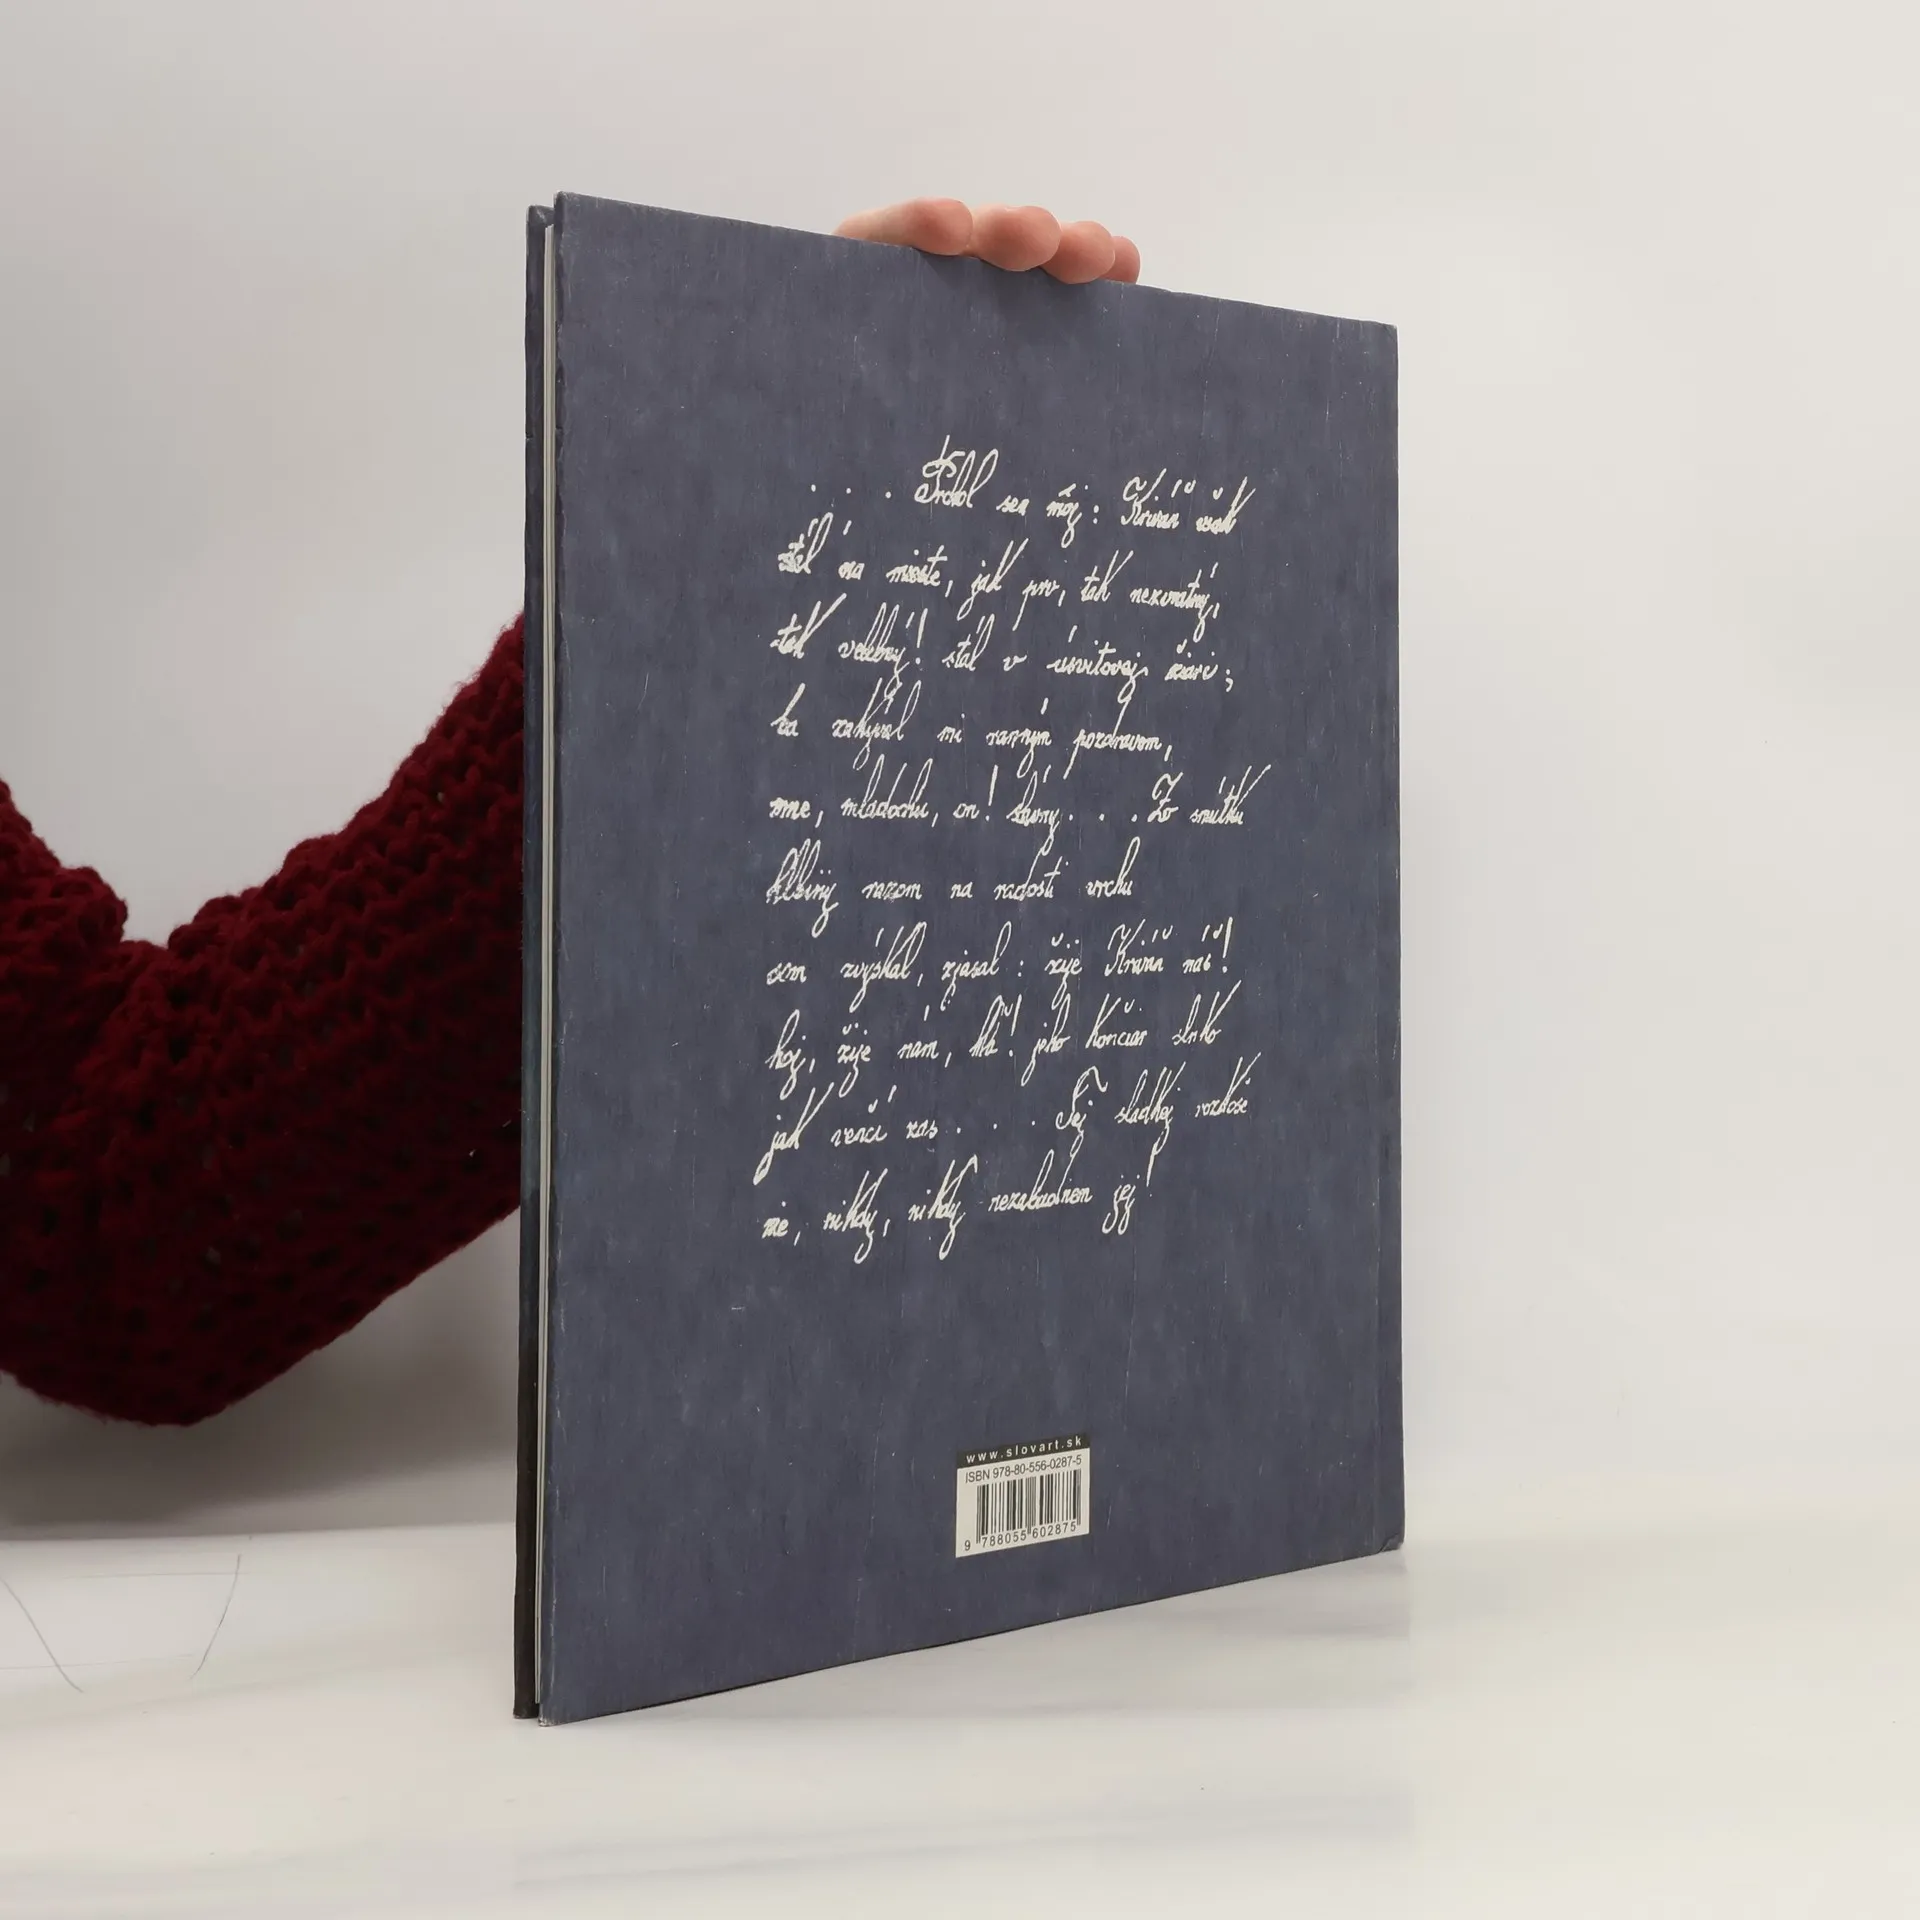 . . . Prchol sen môj: Kriváň však
stál na mieste, jak prv, tak nezvratný,
tak velebný! stál v úsvitovej žiari;
ba zakýval mi ranným pozdravom,
mne, mládochu, on! slávny. . . Zo smútku
hlbiny razom na radosti vrchu
som zvýskal, zjasal: žije Kriváň náš!
hoj, žije nám, hľa! jeho končiar slnko
jak venčí zas. . . Tej sladkej rozkoše
nie, nikdy, nikdy nezabudnem jej!
www.slovart.sk
ISBN 978-80-556-0287-5
9 788055 602875